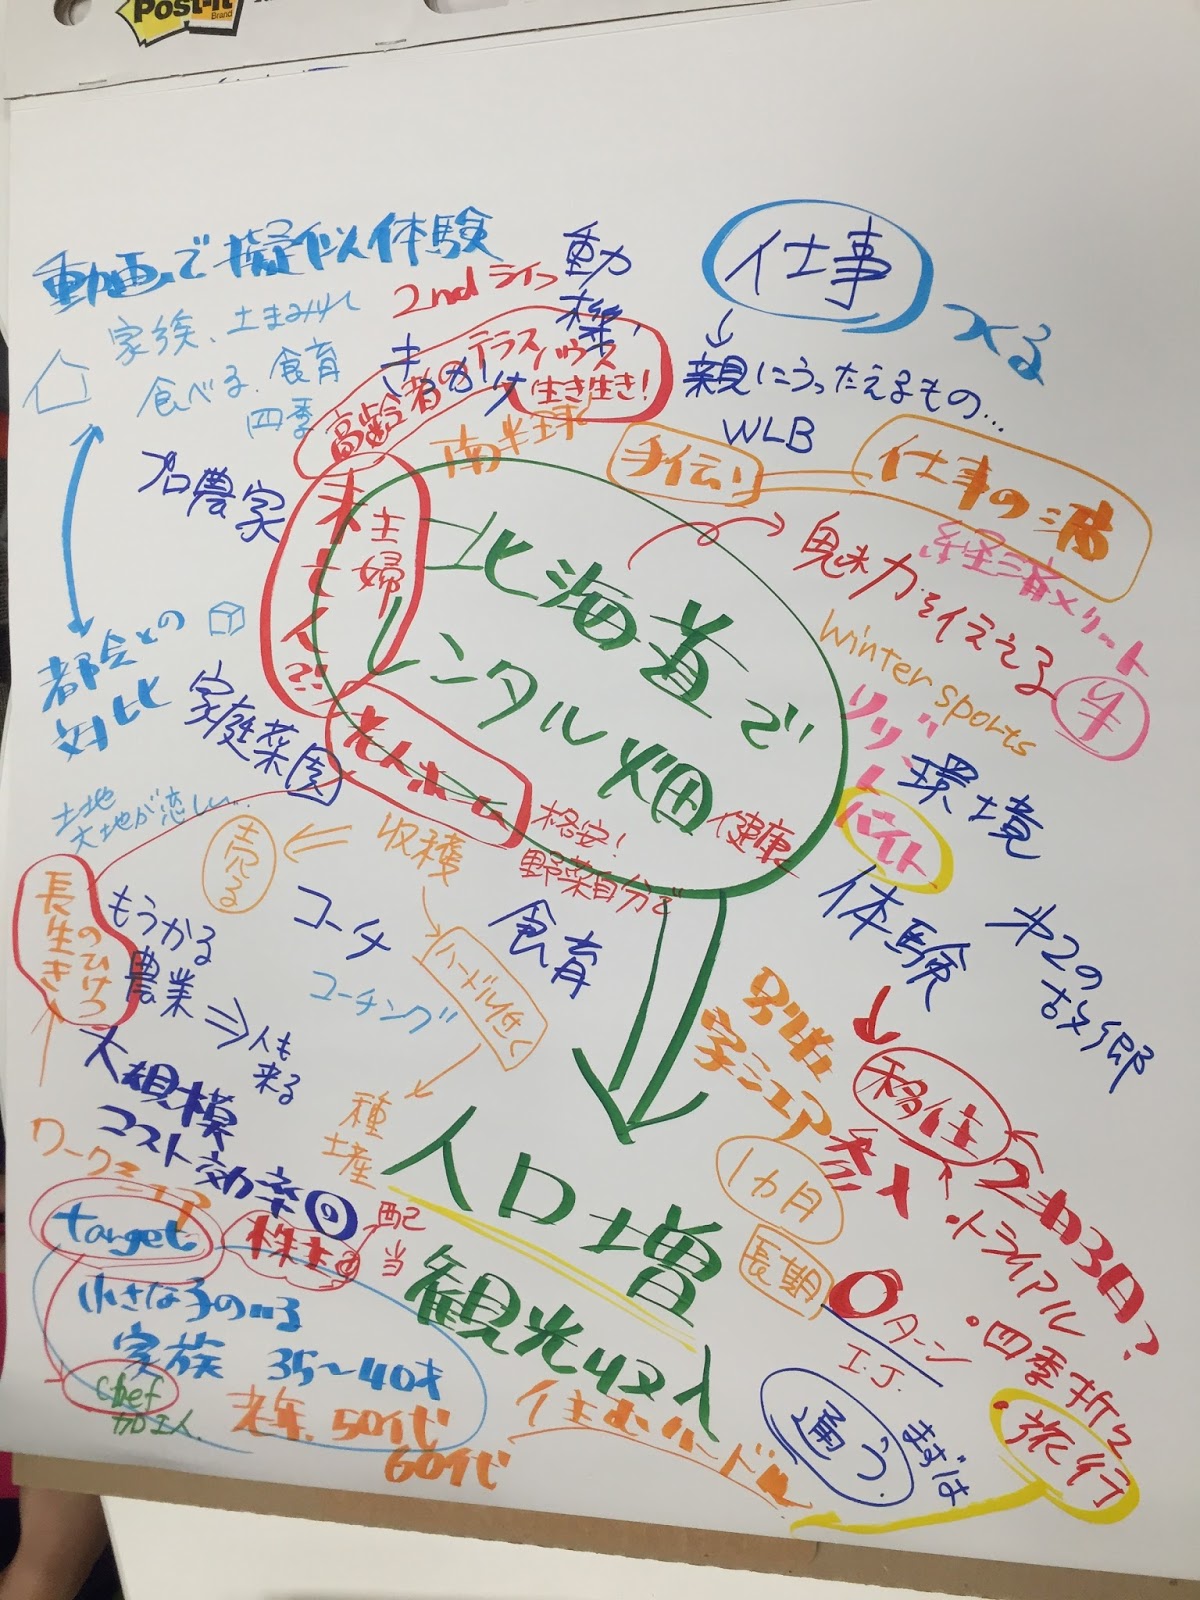 Post-it
Brand
動画で擬似体験
家族、土まみれ
食べる、食育
四季
2nd ライフ
動機、
きっかけ
高齢者のテラスハウス
生き生き!
仕事
つくる
親にうったえるもの…
WLB
南半球
手伝い
仕事の
プロ農家
未亡人
主婦
北海道で
レンタル畑
魅力を伝える
経済メリット
牛
winter sports
リゾート
バイト
環境
体験
都会との
対比
家庭菜園
老人ホーム
健康
格安!
野菜自分で
土地
大地が恋しい…
売る
収穫
コーチ
コーチング
食育
ハードル低く
長生き
のひけつ
もうかる
農業
人も
来る
大規模
コスト効率
種
土産
ワークシェア
target
株主
配
当
小さな子のいる
家族 35〜40才
chef
加工人
老年、50代
60代
人口増
観光収入
住むハードル
別荘
シェア
1カ月
長期
第2の
故郷
移住
参入
2泊3日?
・トライアル
・四季折々
・旅行
Uターン
I.J.
通う
まずは